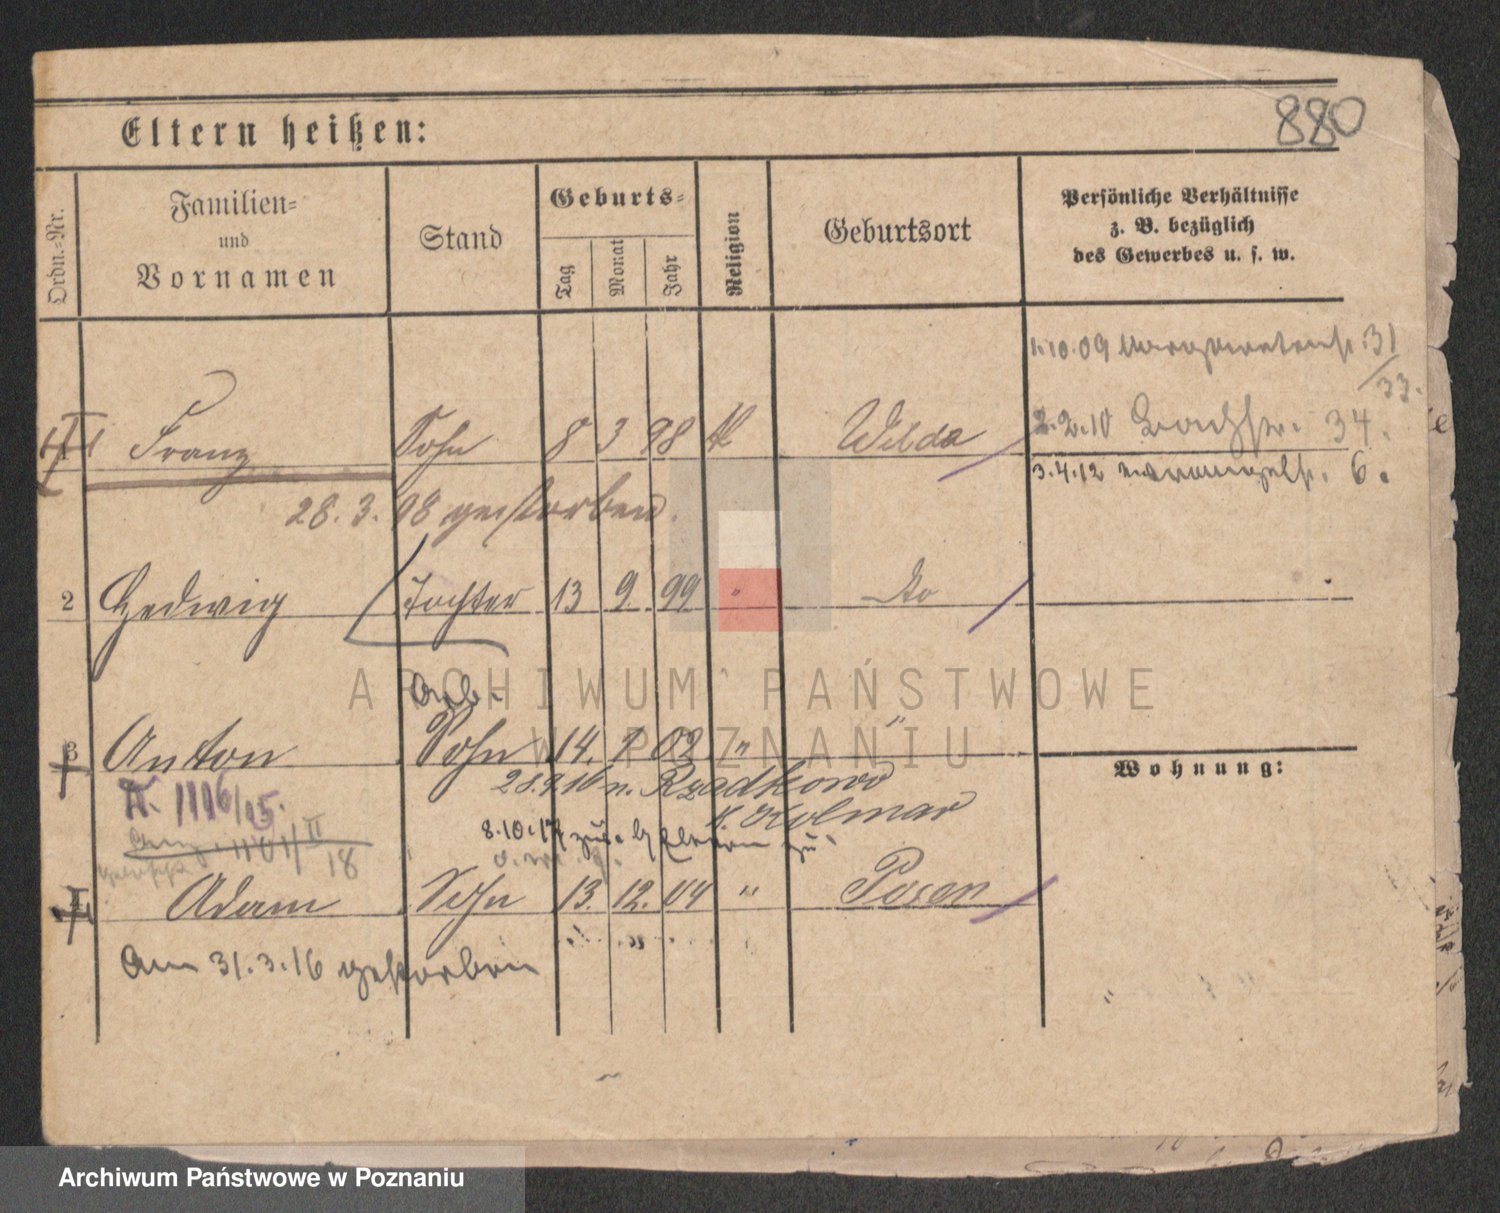 880
Eltern heißen:
Ordn.-Nr.
Familien-
und
Vornamen
Stand
Geburts-
Tag
Monat
Jahr
Religion
Geburtsort
Persönliche Verhältnisse
z. B. bezüglich
des Gewerbes u. s. w.
1.10.09 Margaretenstr. 31/33.
2.2.10 34.
Franz Sohn 8 3 98 K Wilda
3.4.12 6.
28.3.98 gestorben.
2 Hedwig Tochter 13 9 99 " do
Arb.
3 Anton Sohn 14. 1. 02 " "
Wohnung:
28.9.16 n. Rzadkowo
K. Kolmar
A. 1116/05.
8.10.17 zu
18
Adam Sohn 13. 12. 04 " Posen
Am 31.3.16 gestorben
ARCHIWUM PAŃSTWOWE
W POZNANIU
Archiwum Państwowe w Poznaniu